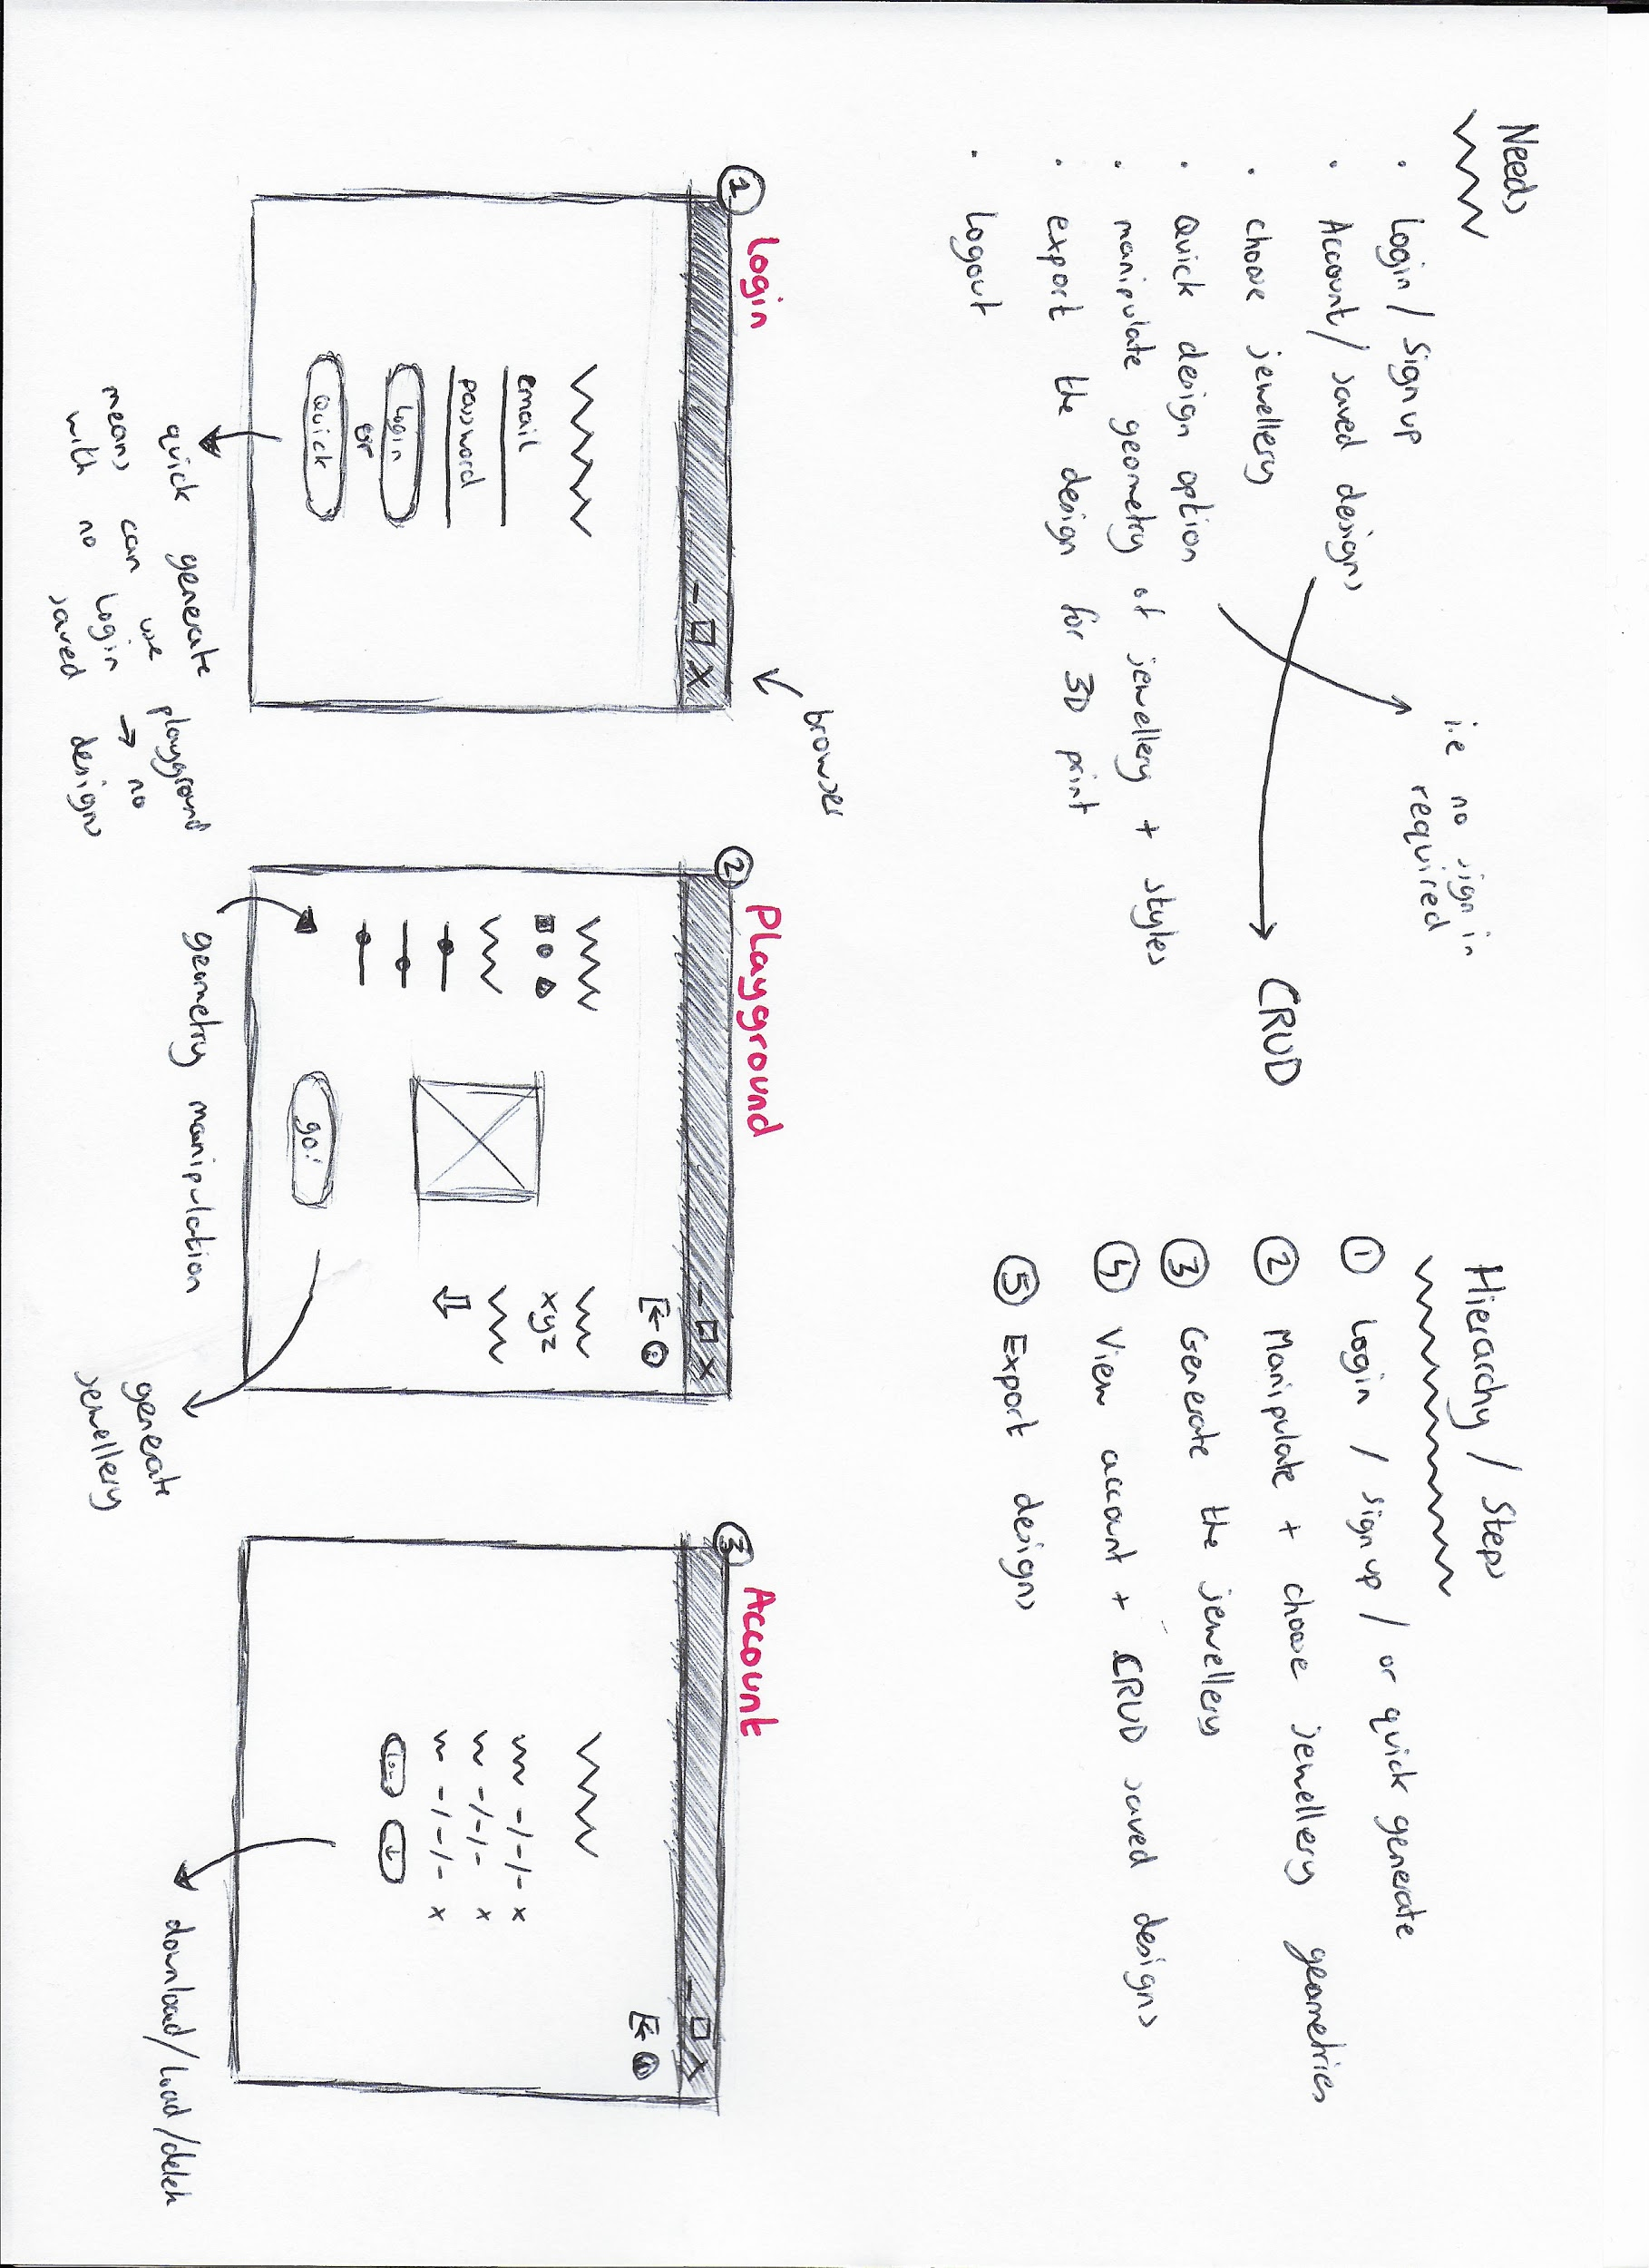 Needs
· Login / Sign up
· Account / saved designs
· choose jewellery
· Quick design option
· manipulate geometry of jewellery + styles
· export the design for 3D print
· Logout
i.e no sign in
required
CRUD
Hierarchy / Steps
① Login / sign up / or quick generate
② Manipulate + choose jewellery geometries
③ Generate the jewellery
④ View account + CRUD saved designs
⑤ Export designs
① Login
browser
- □ X
email
password
Login
or
Quick
quick generate playground
means can use
with no login → no
saved designs
② Playground
- □ X
xyz
go!
geometry manipulation
generate
jewellery
③ Account
- □ X
-/-/- x
-/-/- x
-/-/- x
download/load/delete